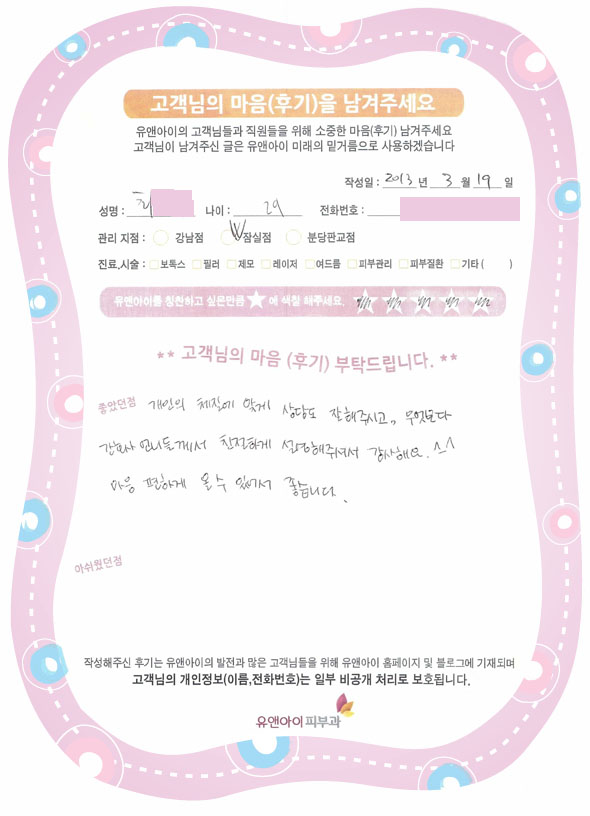 고객님의 마음(후기)을 남겨주세요
유앤아이의 고객님들과 직원들을 위해 소중한 마음(후기) 남겨주세요
고객님이 남겨주신 글은 유앤아이 미래의 밑거름으로 사용하겠습니다
작성일 : 2013 년 3 월 19 일
성명 : 나이 : 29 전화번호 :
관리 지점 : 강남점 잠실점 분당판교점
진료,시술 : 보톡스 필러 제모 레이저 여드름 피부관리 피부질환 기타 ( )
유앤아이를 칭찬하고 싶은만큼 ★ 에 색칠 해주세요.
** 고객님의 마음 (후기) 부탁드립니다. **
좋았던점 개인의 체질에 맞게 상담도 잘해주시고, 무엇보다
간호사 언니들께서 친절하게 설명해주셔서 감사해요. ^^
마음 편하게 올 수 있어서 좋습니다.
아쉬웠던점
작성해주신 후기는 유앤아이의 발전과 많은 고객님들을 위해 유앤아이 홈페이지 및 블로그에 기재되며
고객님의 개인정보(이름,전화번호)는 일부 비공개 처리로 보호됩니다.
유앤아이피부과